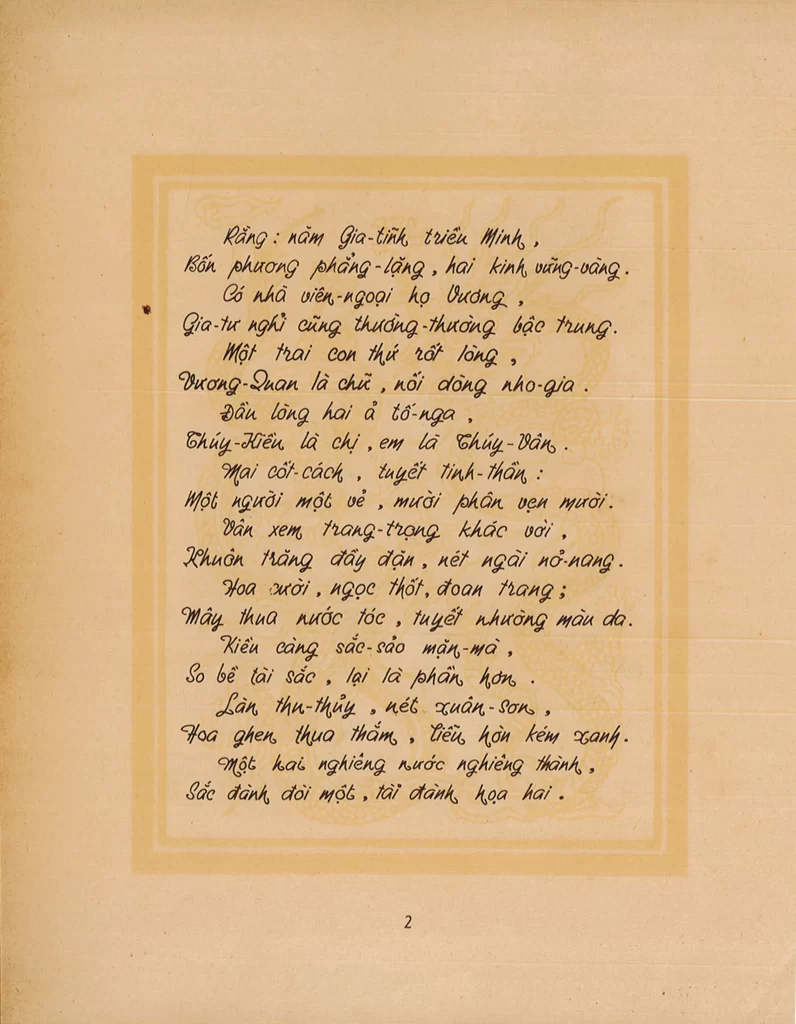 Rằng : năm Gia-tĩnh triều Minh ,
Bốn phương phẳng-lặng , hai kinh vững-vàng .
Có nhà viên-ngoại họ Vương ,
Gia-tư nghỉ cũng thường-thường bậc trung .
Một trai con thứ rốt lòng ,
Vương-Quan là chữ , nối dòng nho-gia .
Đầu lòng hai ả tố-nga ,
Thúy-Kiều là chị , em là Thúy-Vân .
Mai cốt-cách , tuyết tinh-thần :
Một người một vẻ , mười phân vẹn mười .
Vân xem trang-trọng khác vời ,
Khuôn trăng đầy đặn , nét ngài nở-nang .
Hoa cười , ngọc thốt , đoan trang ;
Mây thua nước tóc , tuyết nhường màu da .
Kiều càng sắc-sảo mặn-mà ,
So bề tài sắc , lại là phần hơn .
Làn thu-thủy , nét xuân-sơn ,
Hoa ghen thua thắm , liễu hờn kém xanh .
Một hai nghiêng nước nghiêng thành ,
Sắc đành đòi một , tài đành họa hai .
2